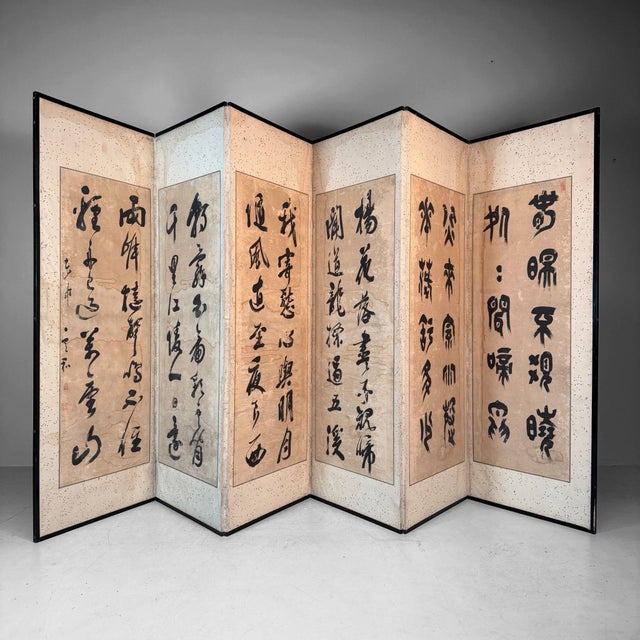 春眠不覺曉
処々聞啼鳥
夜來風雨聲
花落知多少
楊花落盡子規啼
聞道龍標過五溪
我寄愁心與明月
隨風直至夜郎西
朝辭白帝彩雲間
千里江陵一日還
兩岸猿聲啼不住
輕舟已過萬重山